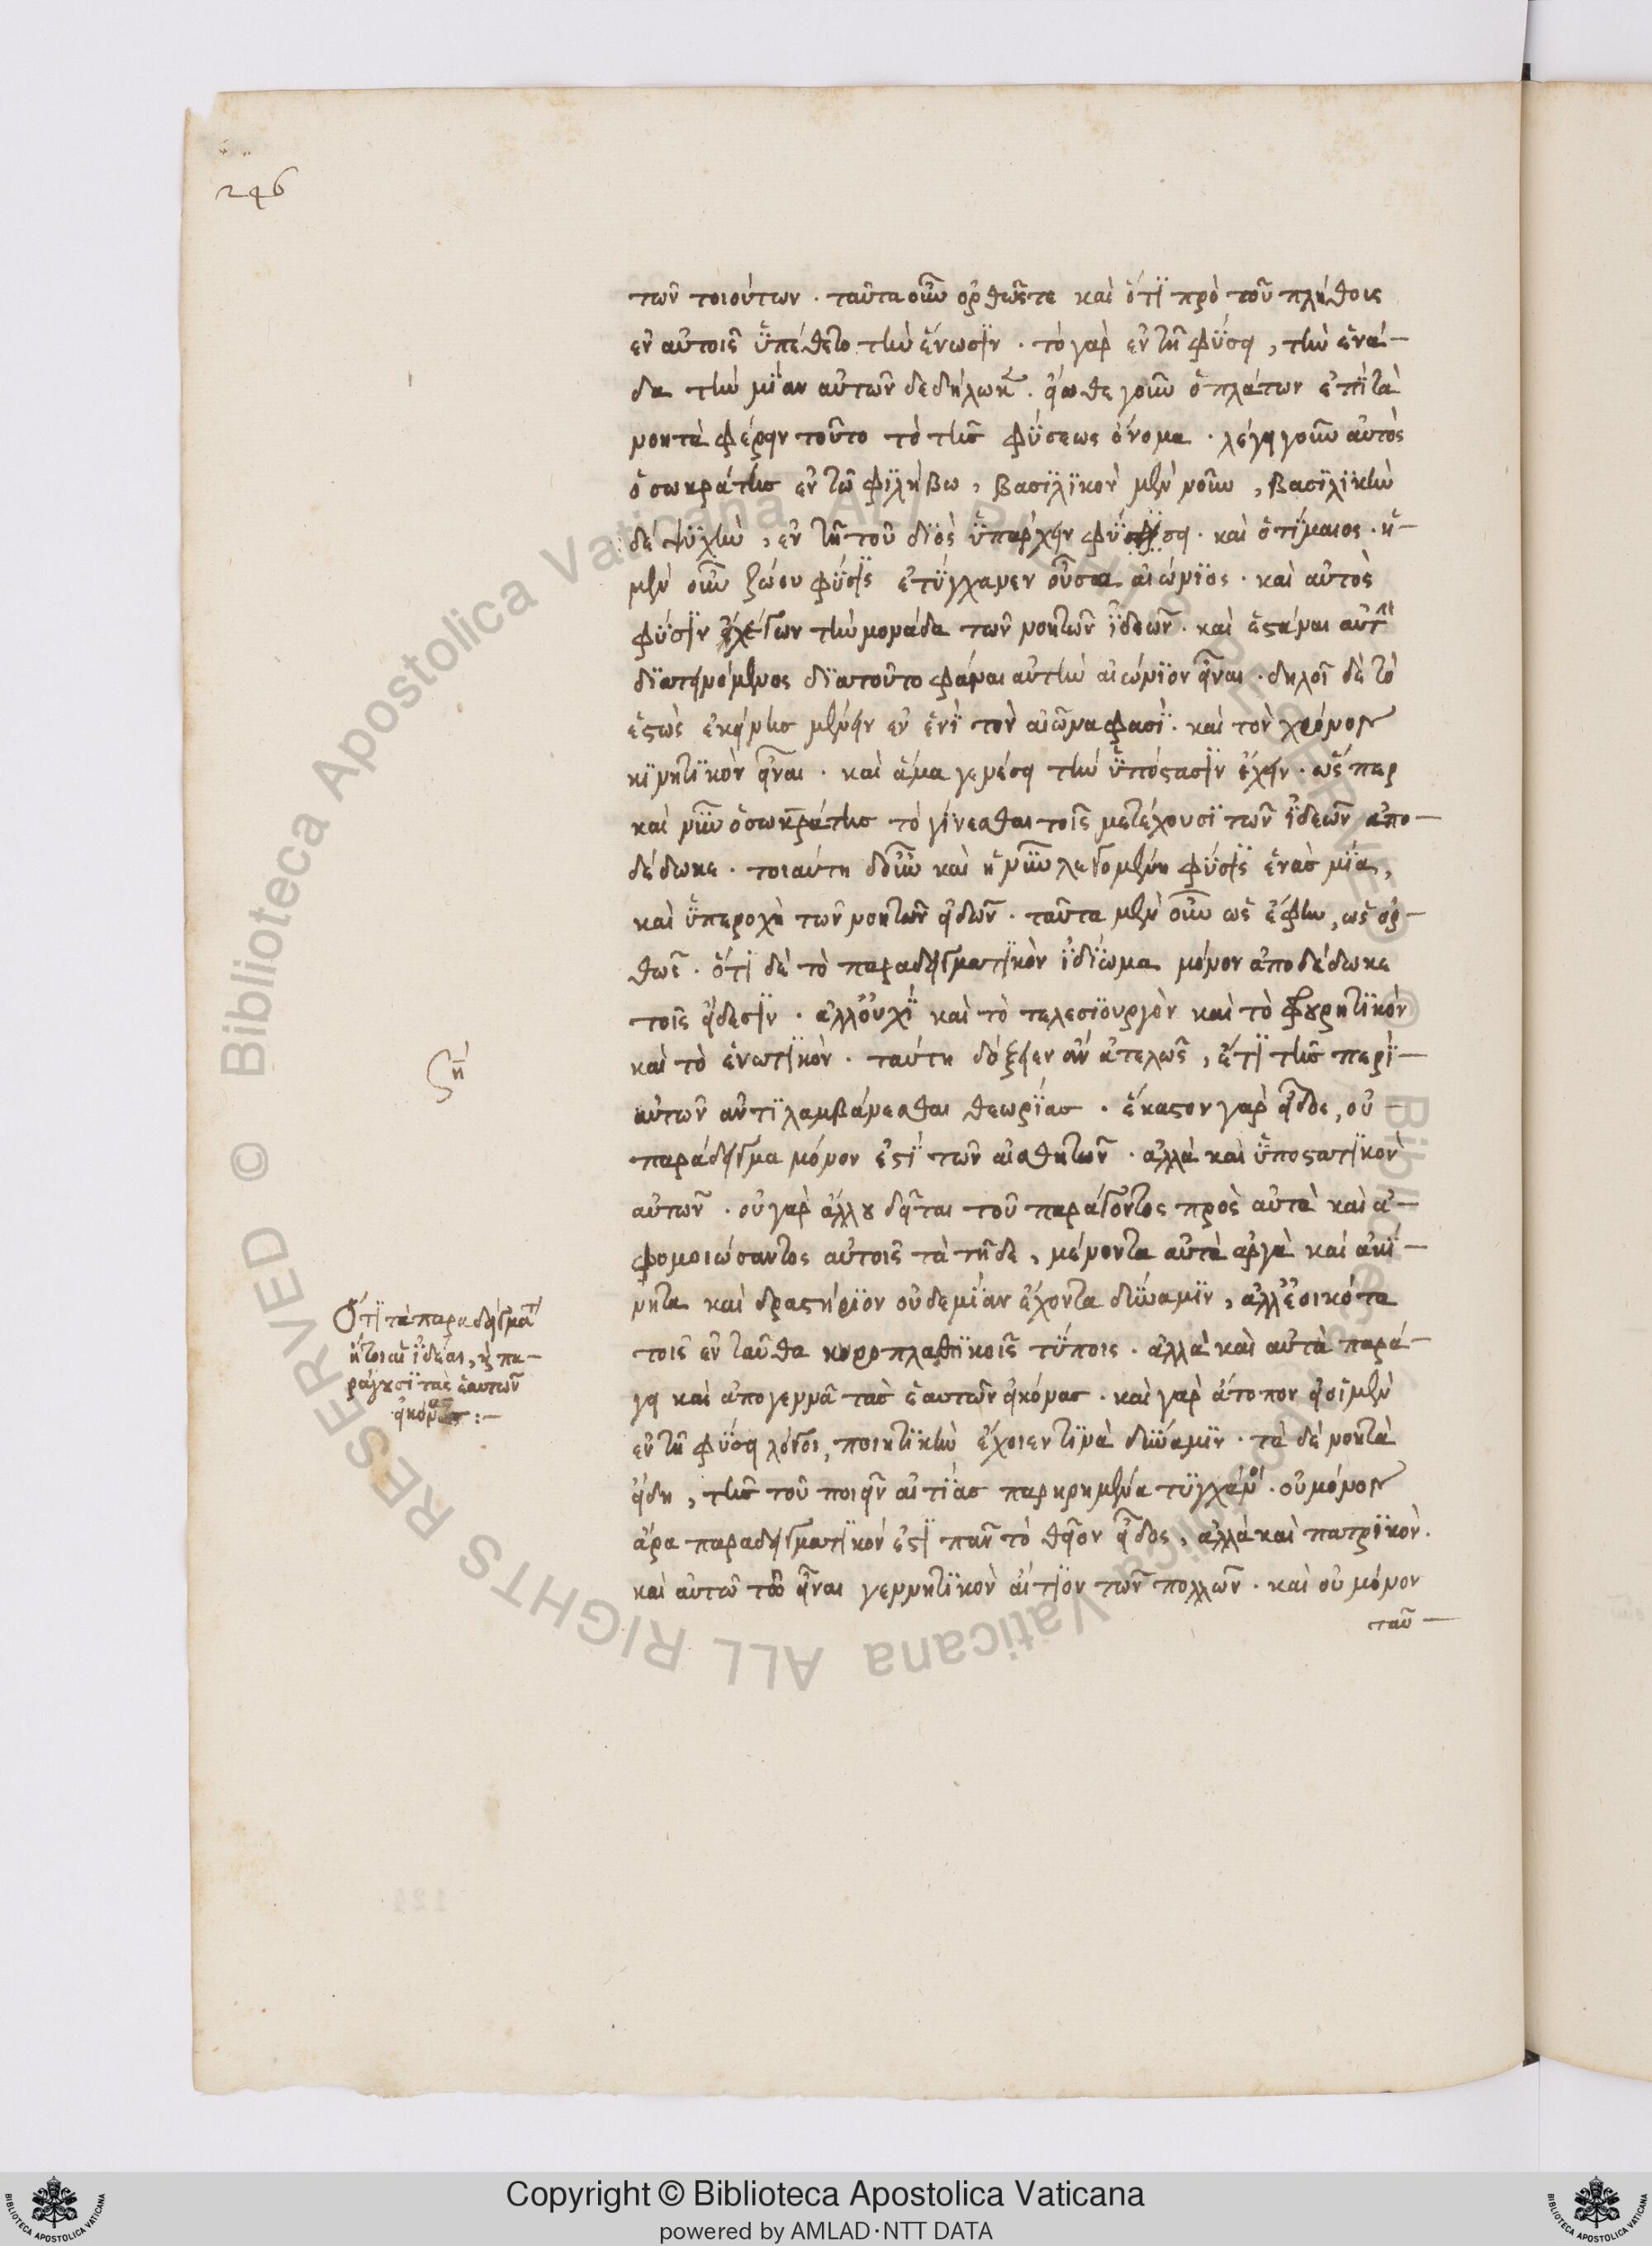 246
τῶν τοιούτων . ταῦτα οὖν ὀρθῶς τε καὶ ὅτι πρὸ τοῦ πλήθοις
ἐν αὐτοῖς ὑπέθετο τὴν ἕνωσιν . τὸ γὰρ ἐν τῇ φύσει , τὴν ἑνά-
δα τὴν μίαν αὐτῶν δεδήλωκε . εἴωθε γοῦν ὁ πλάτων ἐπὶ τὰ
νοητὰ φέρειν τοῦτο τὸ τῆς φύσεως ὄνομα . λέγει γοῦν αὐτὸς
ὁ σωκράτης ἐν τῶ φιλήβω , βασιλικὸν μὲν νοῦν , βασιλικὴν
δὲ ψυχὴν , ἐν τῇ τοῦ διὸς ὑπάρχειν φύσει . καὶ ὁ τίμαιος . ἡ-
μὲν οὖν ζώου φύσις ἐτύγχανεν οὖσα αἰώνιος . καὶ αὐτὸς
φύσιν λέγων τὴν μονάδα τῶν νοητῶν ἰδεῶν . καὶ ἑστάναι αὐτὴν
διατεινόμενος διατοῦτο φάναι αὐτὴν αἰώνιον εἶναι . δηλοῖ δὲ τὸ
ἑστὼς ἐκείνης μένειν ἐν ἑνὶ τὸν αἰῶνα φασὶ . καὶ τὸν χρόνον
κινητικὸν εἶναι . καὶ ἅμα γενέσει τὴν ὑπόστασιν ἔχειν . ὥς περ
καὶ νῦν ὁ σωκράτης τὸ γίνεσθαι τοῖς μετέχουσι τῶν ἰδεῶν ἀπο-
δέδωκε . τοιαύτη δ' οὖν καὶ ἡ νῦν λεγομένη φύσις ἑνὰς μία ,
καὶ ὑπεροχὴ τῶν νοητῶν εἰδῶν . ταῦτα μὲν οὖν ὡς ἔφην , ὡς ὀρ-
θῶς . ὅτι δὲ τὸ παραδειγματικὸν ἰδίωμα μόνον ἀποδέδωκε
τοῖς εἴδεσιν . ἀλλ' οὐχὶ καὶ τὸ τελεσιουργὸν καὶ τὸ φρουρητικὸν
καὶ τὸ ἑνωτικὸν . ταύτη δόξειεν ἂν ἀτελῶς , ἔτι τῆς περὶ-
αὐτῶν ἀντιλαμβάνεσθαι θεωρίας . ἕκαστον γὰρ εἶδος , οὐ-
παράδειγμα μόνον ἐστὶ τῶν αἰσθητῶν . ἀλλὰ καὶ ὑποστατικὸν
αὐτῶν . οὐ γὰρ ἄλλου δεῖται τοῦ παράγοντος πρὸς αὐτὰ καὶ ἀ-
φομοιώσαντος αὐτοῖς τὰ τῇδε , μένοντα αὐτὰ ἀργὰ καὶ ἀκί-
νητα καὶ δραστήριον οὐδεμίαν ἔχοντα δύναμιν , ἀλλ' ἐοικότα
τοῖς ἐνταῦθα κηροπλαστικοῖς τύποις . ἀλλὰ καὶ αὐτὰ παρά-
γει καὶ ἀπογεννᾶ τὰς ἑαυτῶν εἰκόνας . καὶ γὰρ ἄτοπον εἰ οἱ μὲν
ἐν τῇ φύσει λόγοι , ποιητικὴν ἔχοιεν τινὰ δύναμιν . τὰ δὲ νοητὰ
εἴδη , τῆς τοῦ ποιεῖν αἰτίας παρηρημένα τυγχάνοι . οὐ μόνον
ἄρα παραδειγματικόν ἐστι πᾶν τὸ θεῖον εἶδος , ἀλλὰ καὶ πατρικὸν .
καὶ αὐτῶ τῶ εἶναι γεννητικὸν αἴτιον τῶν πολλῶν . καὶ οὐ μόνον
ταῦ-
ση
Ὅτι τὰ παραδείγματα
ἤτοι αἱ ἰδέαι , καὶ πα-
ράγουσι τὰς ἑαυτῶν
εἰκόνας :-